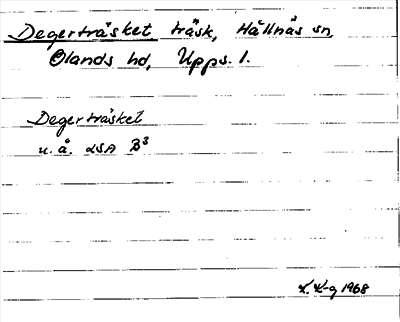 Degerträsket träsk, Hållnäs sn,
Olands hd, Upps. l.
Degerträsket
u. å. LSA B³
L. K-g 1968